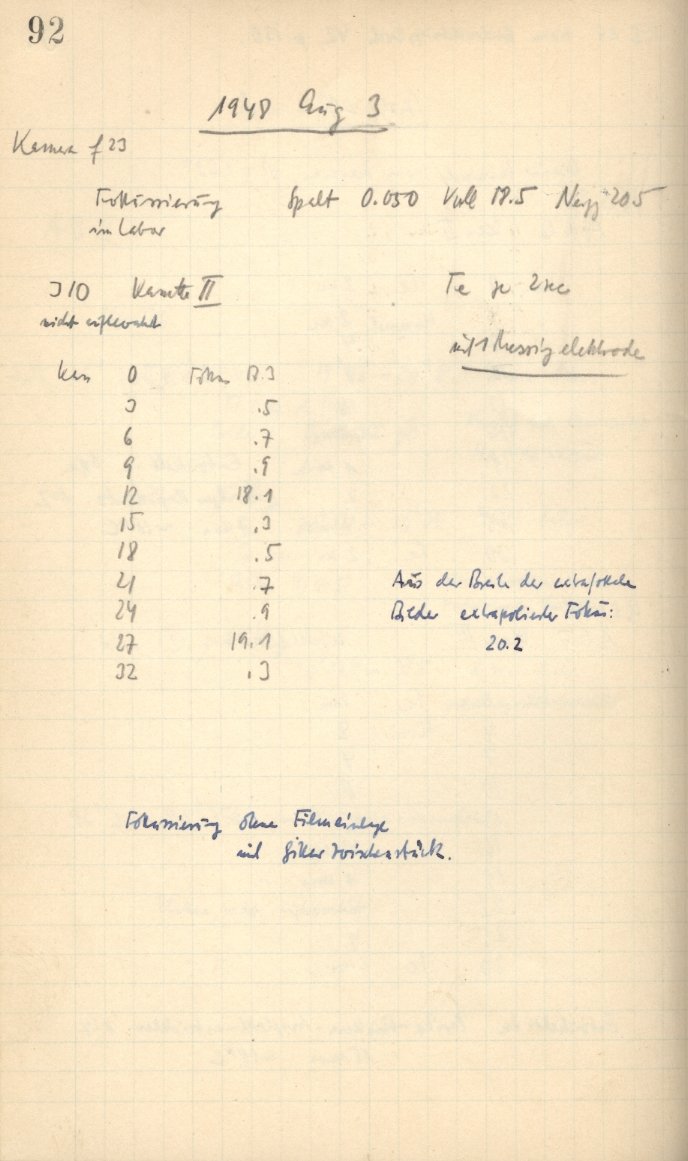 92
1948 Aug 3
Kamera f 23
Fokussierung Spalt 0.050 Koll 18.5 20.5
im Labor
J10 Kassette II Te je 2 sec
nicht aufbewahrt
mit 1 Messingelektrode
Kass 0 Fokus 17.3
3 .5
6 .7
9 .9
12 18.1
15 .3
18 .5
21 .7
24 .9
27 19.1
32 .3
Aus der Breite der extrafokale
Bilder extrapolierter Fokus:
20.2
Fokussierung ohne Filmeinlage
mit Zwischenstück.